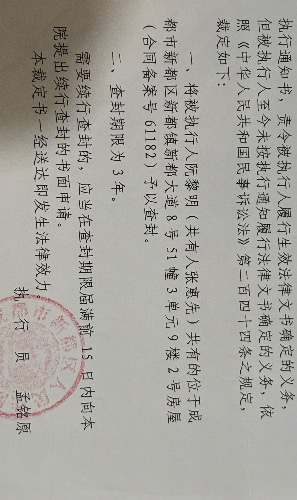 执行通知书，责令被执行人履行生效法律文书确定的义务，
但被执行人至今未按执行通知履行法律文书确定的义务，依
照《中华人民共和国民事诉讼法》第二百四十四条之规定，
裁定如下：
一、将被执行人阮黎明（共有人张惠先）共有的位于成
都市新都区新都镇新都大道8号51幢3单元9楼2号房屋
（合同备案号61182）予以查封。
二、查封期限为3年。
需要续行查封的，应当在查封期限届满前15日内向本
院提出续行查封的书面申请。
本裁定书一经送达即发生法律效力。
执行员 孟铭原